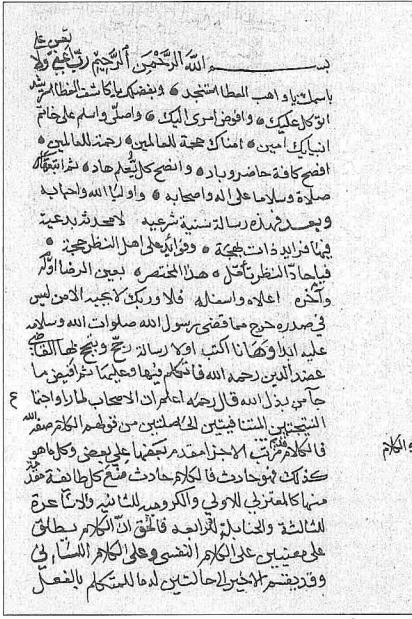 بسم الله الرحمن الرحيم رب اعني ولا
تعس علي
باسمك يا واهب العطا استنجد وبفضلك يا كاشف الغطا استرشد
اتوكل عليك وافوض امري اليك واصلي واسلم على خاتم
انبيائك امين امنائك حجة للعالمين رحمة للعالمين
افصح كافة حاضر وباد وانصح كل
صلاة وسلاما على اله واصحابه و
وبعد فهذه رسالة سنية شرعية لا محدثة بدعية
فيها فرايد ذات بهجة وفوائد على اهل النظر حجة
فيا حاد النظر تأمل هذا المختصر بعين الرضا اوله
وآخره اعلاه واسفله فلا وربك لا يجيد الا من ليس
في صدره حرج مما قضى رسول الله صلوات الله وسلامه
عليه ابدا وها انا اكتب اولا رسالة القاضي
عضد الدين رحمه الله فاتكلم فيها وعليها ثم افيض ما
من بذل الله قال رحمه اعلم ان الاصحاب لما راوا
النتيجتين المتنافيتين الحاصلتين من قولهم الكلام صفة الله
فالكلام قديم مرتب الاجزا مقدم بعضها على بعض وكل ما هو
والكلام
كذلك فهو حادث فالكلام حادث منع كل طائفة مقدمة
منها كالمعتزلي للاولى والكرومية للثانية والاشاعرة
للثالثة والحنابلة للرابعة فالحق ان الكلام يطلق
على معنيين على الكلام النفسي وعلى الكلام اللساني
وقد يقسم الاخير الى حالتين لدما للمتكلم بالفعل